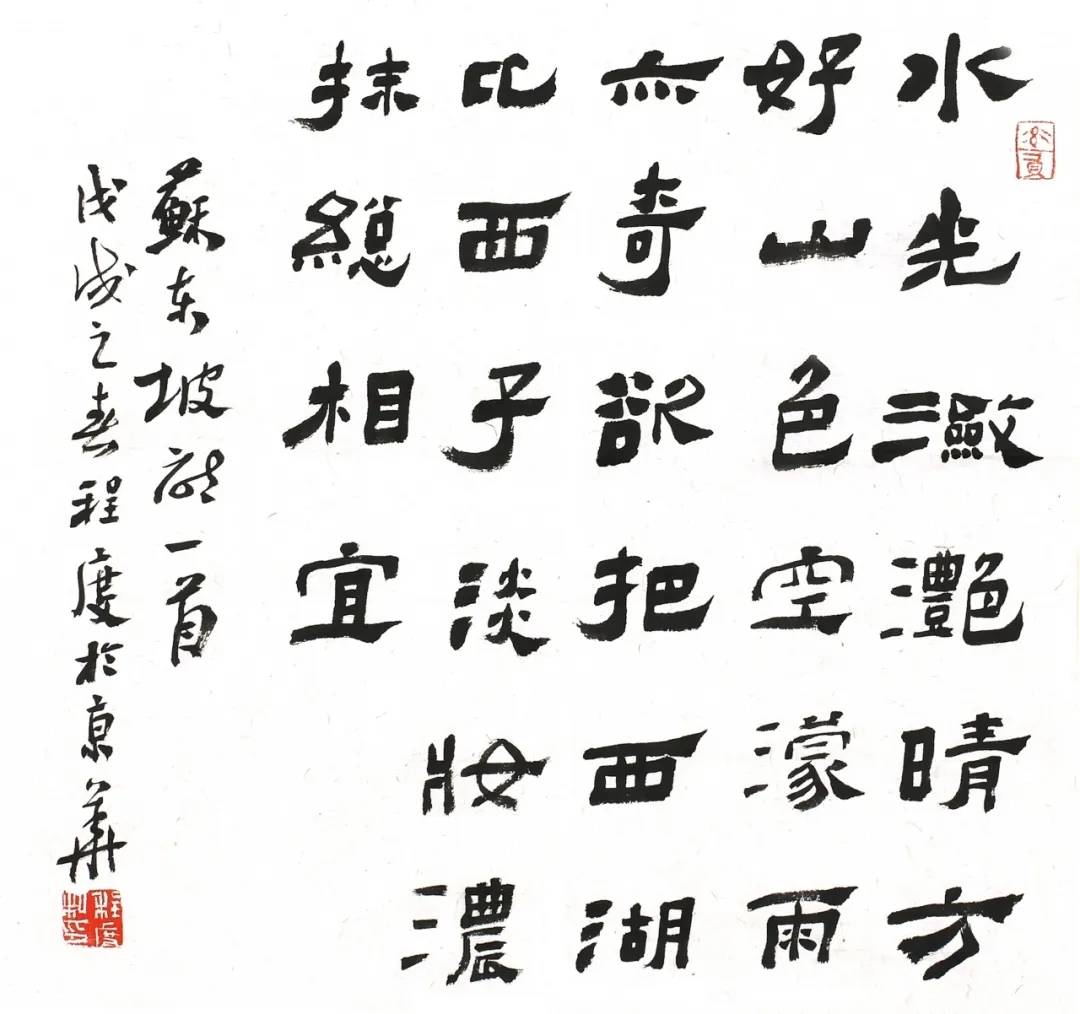 水光瀲灔晴方
好山色空濛雨
亦奇欲把西湖
比西子淡妝濃
抹總相宜
蘇東坡詩一首
戊戌之春程度於京華